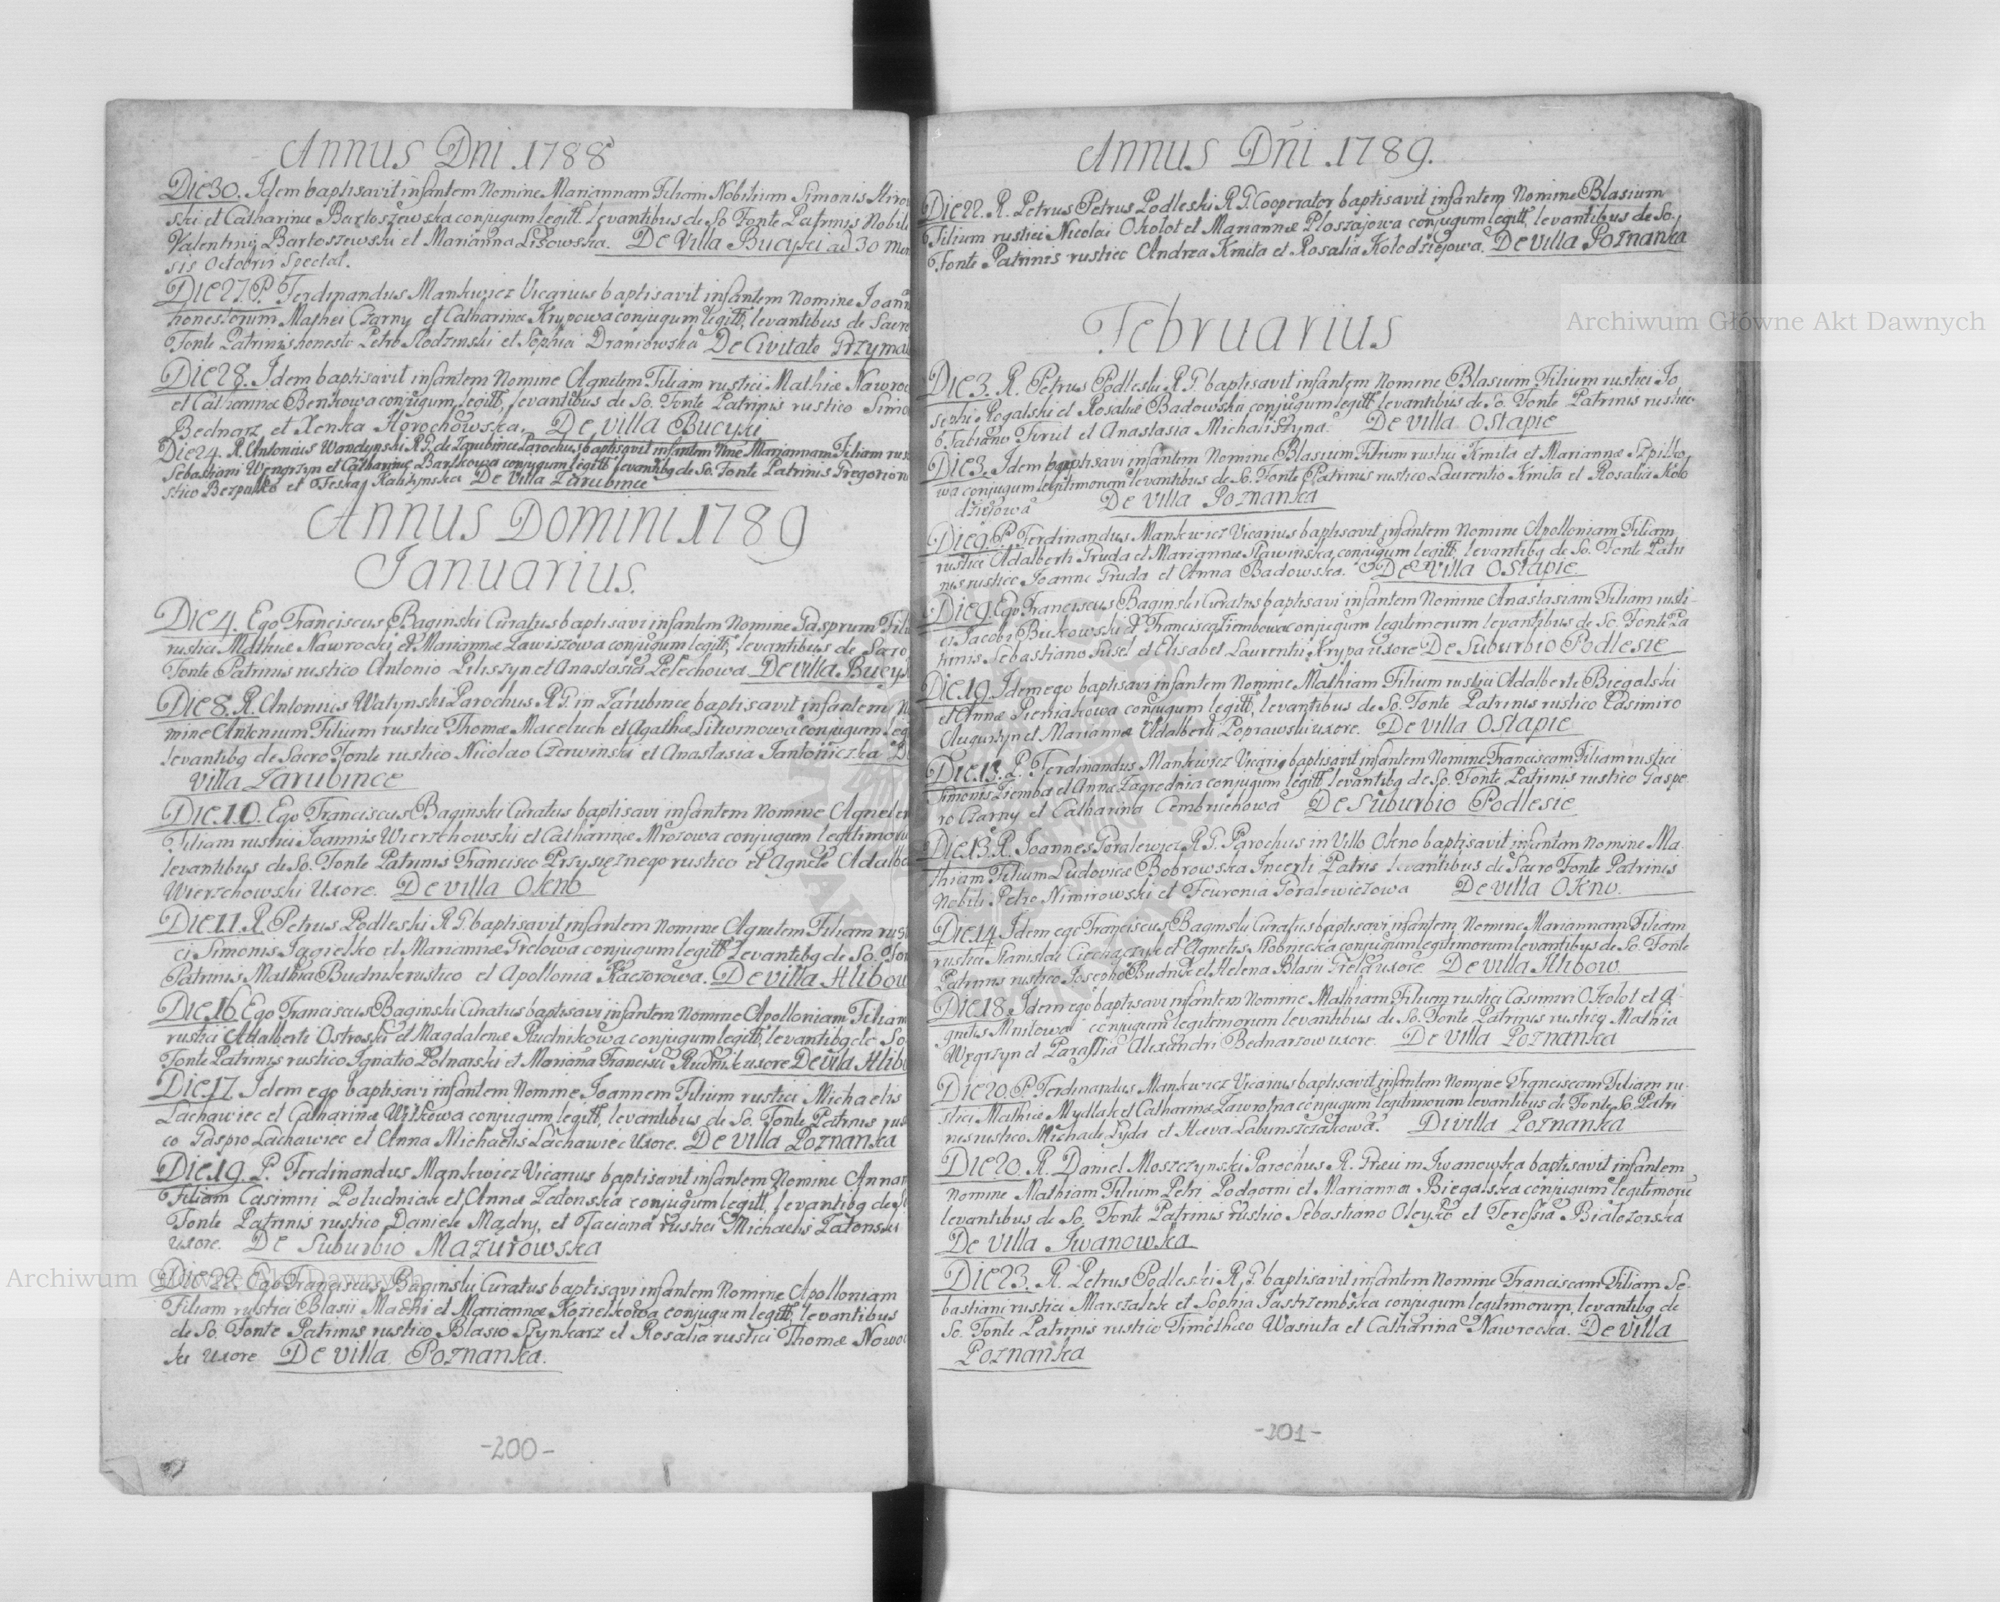 Annus Dni 1788
Die 30. Idem baptisavit infantem Nomine Mariannam Filiam Nobilium Simonis
ski et Catharinæ Bartoszewska conjugum legitt. levantibus de So Fonte Patrinis Nobili
Valentinij Bartoszewski et Marianna Lisowska. De Villa Bucyki ad 30 men
sis Octobris Spectat.
Die 27. P. Ferdinandus Mankiwicz Vicarius baptisavit infantem Nomine Joann
honestorum Mathei Czarny et Catharinæ Krypowa conjugum legitt. levantibus de Sacro
Fonte Patrinis honesto Petro Slodzinski et Sophia Draniowska De Civitate Grzymal
Die 28. Idem baptisavit infantem Nomine Agnetem Filiam rustici Mathiæ Nawroc
et Catharinæ Benkowa conjugum legitt, levantibus de So. Fonte Patrinis rustico Simo
Bednarz, et Xenka Horochowska. De villa Bucyki
Die 24. R. Antonius R.G. de Zarubince Parochus baptisavit infantem Nine Mariannam Filiam rus
Sebastiani Węngrzyn et Catharinæ Barskowa conjugum legitt levantibq de So. Fonte Patrinis Gregorio
stico Bezpalko et Teska Kalizynska De Villa Zarubince
Annus Domini 1789
Januarius.
Die 4. Ego Franciscus Baginski Curatus baptisavi infantem Nomine Gasprum Fili
rustici Mathiæ Nawrocki, et Mariannæ Zawiszowa conjugum legitt, levantibus de Sacro
Fonte Patrinis rustico Antonio Piliszyn et Anastasia Pelechowa. De villa Bucyk
Die 8. R. Antonius Watynski Parochus R.G. in Zarubince baptisavit infantem N
mine Antonium Filium rustici Thomæ Maceluch et Agathæ Litwinowa conjugum leg
levantibq de Sacro Fonte rustico Nicolao Czerwinski et Anastasia Jantoniczka D
Villa Zarubince
Die 10. Ego Franciscus Baginski Curatus baptisavi infantem Nomine Agnetem
Filiam rustici Joannis Wierzchowski et Catharinæ Mrozowa conjugum legitimoru
levantibus de So. Fonte Patrinis Francisco Przysięznego rustico et Agnete Adalbe
Wierzchowski Uxore. De villa Okno
Die 11. R. Petrus Podleski R.G. baptisavit infantem Nomine Agnetem Filiam rusti
ci Simonis Jagielsko et Mariannæ Grelowa conjugum legitt levantibq de So. Fon
Patrinis Mathia Budnik rustico et Apollonia Kaczorowa. De villa Hlibow
Die 16. Ego Franciscus Baginski Curatus baptisavi infantem Nomine Apolloniam Filiam
rustici Adalberti Ostroski et Magdalenæ Rudnikowa conjugum legitt, levantibq de So
Fonte Patrinis rustico Ignatio Polnarski et Mariana Francisci Rudnik uxore De villa Hlibo
Die 17. Idem ego baptisavi infantem Nomine Joannem Filium rustici Michaelis
Lachawiec et Catharinæ Witkowa conjugum legitt, levantibus de So. Fonte Patrinis rus
co Paspro Lachawiec et Anna Michaelis Lachawiec Uxore. De villa Poznanka
Die 19. P. Ferdinandus Mankiwicz Vicarius baptisavit infantem Nomine Annam
Filiam Casimiri Poludniak et Annæ Zatonska conjugum legitt, levantibq de S
Fonte Patrinis rustico Daniele Mądry, et Taciana rustici Michaelis Zatonski
Uxore. De Suburbio Mazurowska
Die 22. Ego Franciscus Baginski Curatus baptisavi infantem Nomine Apolloniam
Filiam rustici Blasii Machi et Mariannæ Kozielkowa conjugum legitt, levantibus
de So. Fonte Patrinis rustico Blasio Szynkarz et Rosalia rustici Thomæ Nowo
ki Uxore De villa Poznanka.
-200-
Annus Dni 1789.
Die 22. R. Petrus Petrus Podleski R.G. Cooperator baptisavit infantem Nomine Blasium
Filium rustici Nicolai Okolot et Mariannæ Ploszajowa conjugum legitt, levantibus de So.
Fonte Patrinis rustico Andrea Kmita et Rosalia Kolodziejowa. De villa Poznanka
Februarius
Die 3. R. Petrus Podleski R.G. baptisavit infantem Nomine Blasium Filium rustici Jo
sephi Rogalski et Rosaliæ Badowska conjugum legitt levantibus de So. Fonte Patrinis rustico
Fabiano Firut et Anastasia Michaliszyna. De villa Ostapie
Die 3. Idem baptisavi infantem Nomine Blasium Filium rustici Kmita et Mariannæ Szpilko
wa conjugum legitimorum levantibus de So. Fonte Patrinis rustico Laurentio Kmita et Rosalia Kolo
dziejowa De villa Poznanka
Die 9. P. Ferdinandus Mankwicz Vicarius baptisavit infantem Nomine Apolloniam Filiam
rustici Adalberti Gruda et Mariannæ Slawinska, conjugum legitt, levantibq de So. Fonte Patri
nis rustico Joanne Gruda et Anna Badowska. De villa Ostapie
Die 9. Ego Franciscus Baginski Curatus baptisavi infantem Nomine Anastasiam Filiam rusti-
ci Jacobi Biskowski et Francisca Ziembowa conjugum legitimorum levantibus de So. Fonte Pa
trinis Sebastiano Gusel et Elisabet Laurentii Krypa uxore De Suburbio Podlesie
Die 19. Idem ego baptisavi infantem Nomine Mathiam Filium rustici Adalberti Biegalski
et Annæ Pieniakowa conjugum legitt, levantibus de So. Fonte Patrinis rustico Casimiro
Augustyn et Mariannæ Adalberti Poprawski uxore. De villa Ostapie
Die 13. P. Ferdinandus Mankiwicz Vicariq baptisavit infantem Nomine Franciscam Filiam rustici
Simonis Ziemba et Annæ Zagrednia conjugum legitt levantibq de So. Fonte Patrinis rustico Gaspe
ro Czarny et Catharina Cembruchowa De Suburbio Podlesie
Die 13. R. Joannes Goralewicz R.G. Parochus in Villo Okno baptisavit infantem Nomine Ma
thiam Filium Ludovicæ Bobrowska Incerti Patris levantibus de Sacro Fonte Patrinis
Nobili Petro Nimirowski et Feuronia Goralewiczowa De villa Okno.
Die 14. Idem ego Franciscus Baginski Curatus baptisavi infantem Nomine Mariannam Filiam
rustici Stanislai Ciechaczyk et Agnetis Skobnecka conjugum legitimorum levantibus de So. Fonte
Patrinis rustico Josepho Budnik et Helena Blasii Grela uxore De villa Hlibow.
Die 18. Idem ego baptisavi infantem Nomine Mathiam Filium rustici Casimiri Okolot et A-
gnetis Mnilowa conjugum legitimorum levantibus de So. Fonte Patrinis rusticq Mathia
Węgrzyn et Parassia Alexandri Bednarzow uxore. De villa Poznanka
Die 20. P. Ferdinandus Mankwicz Vicarius baptisavit infantem Nomine Franciscam Filiam ru
stici Mathiæ Mydlak et Catharinæ Zawrotna conjugum legitimorum levantibus de Fonte So. Patri
nis rustico Michaele Gyda et Hava Labunszczakowa. Di villa Poznanka
Die 20. R. Daniel Moszczynski Parochus R. Græci in Iwanowka baptisavit infantem
Nomine Mathiam Filium Petri Podgorni et Marianna Biegalska conjugum legitimoru
levantibus de So. Fonte Patrinis rustico Sebastiano Oleyko et Teressia Bialozorska
De Villa Iwanowka
Die 23. R. Petrus Podleski R.G. baptisavit infantem Nomine Franciscam Filiam Se-
bastiani rustici Marszalek et Sophia Jastrzembska conjugum legitimorum, levantibq de
So. Fonte Patrinis rustico Timotheo Wasiuta et Catharina Nawrocka. De villa
Poznanka
-201-
Archiwum Główne Akt Dawnych
Archiwum Główne Akt Dawnych